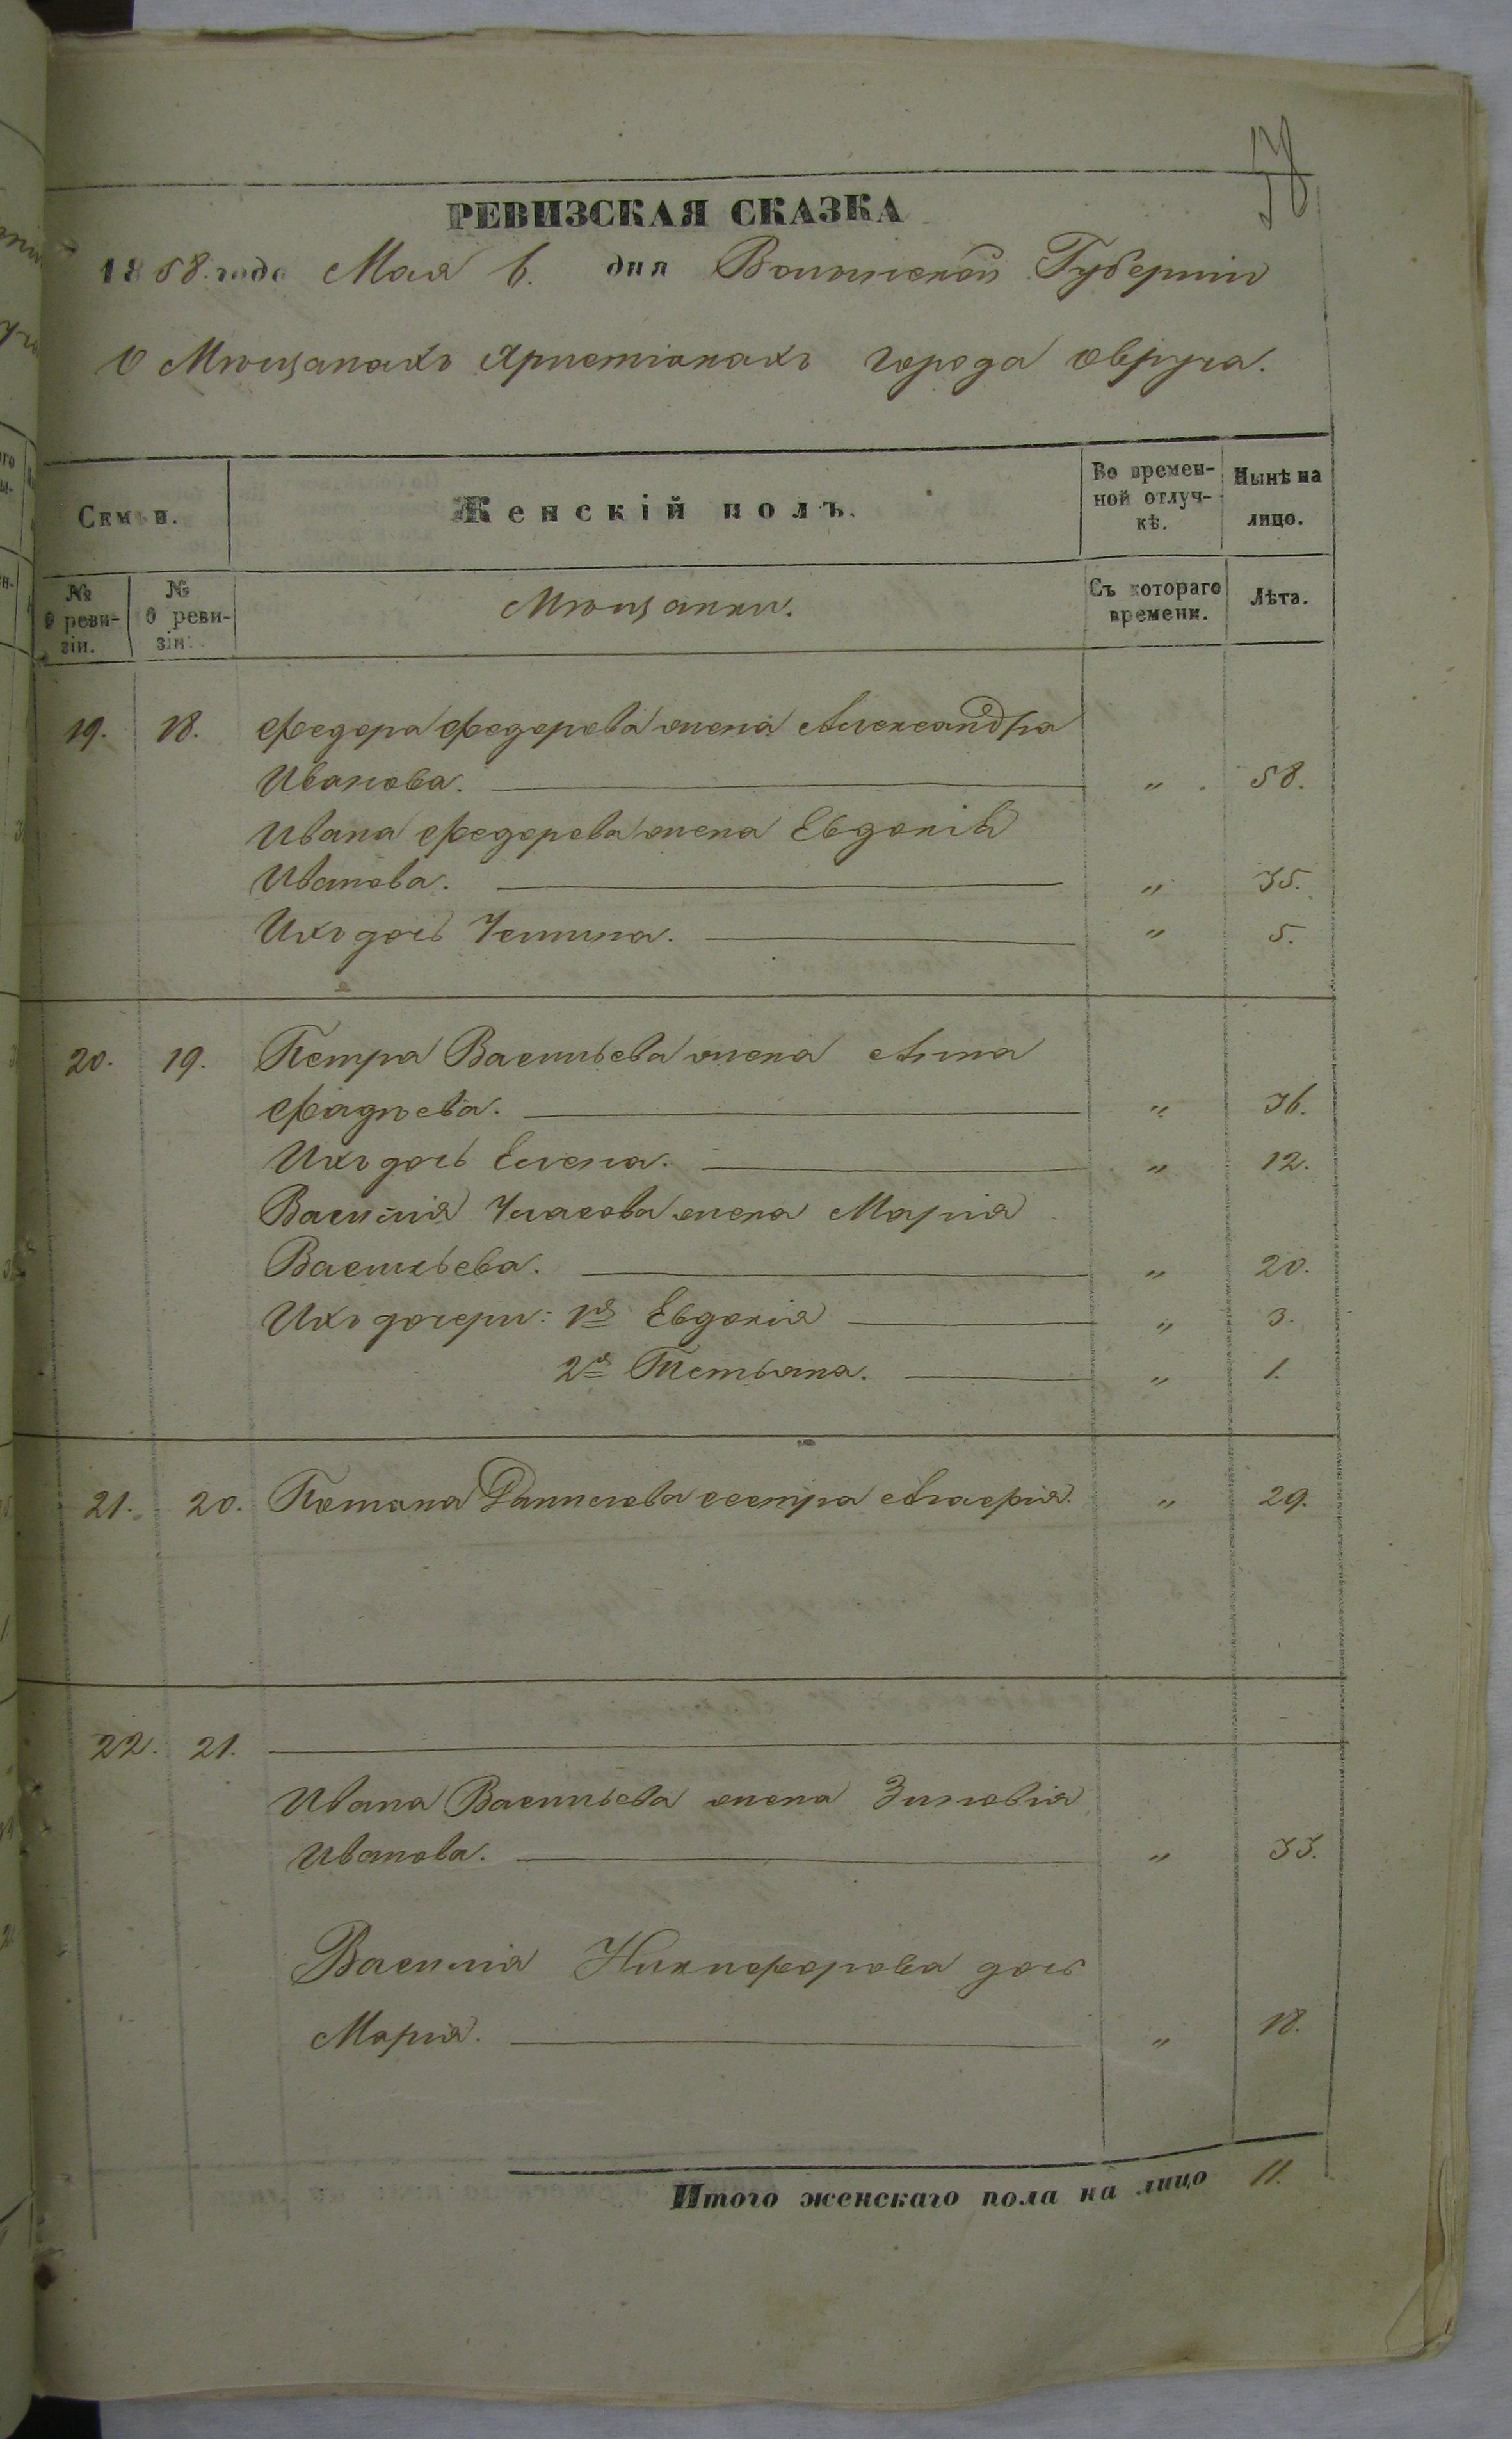 58
РЕВИЗСКАЯ СКАЗКА
1858. года Мая 6. дня Волынской Губерніи
О Мѣщанахъ Христіанахъ города Овруча.
Семьи.
Женскій полъ.
Во времен-
ной отлуч-
кѣ.
Нынѣ на
лицо.
№
9 реви-
зіи.
№
10 реви-
зіи.
Мѣщанки.
Съ котораго
времени.
Лѣта.
19. 18. Федора Федорова жена Александра
Иванова. " 58.
Ивана Федорова жена Евдокія
Иванова. " 35.
Ихъ дочь " 5.
20. 19. Петра Васильева жена Анна
Фадѣева. " 36.
Ихъ дочь Елена. " 12.
Василія Уласова жена Марія
Васильева. " 20.
Ихъ дочери: 1я Евдокія " 3.
2я Тетьяна. " 1.
21. 20. Потапа Данилова сестра Агафія. " 29.
22. 21.
Ивана Васильева жена Зиновія
Иванова. " 33.
Василія Никифорова дочь
Марія. " 18.
Итого женскаго пола на лицо 11.